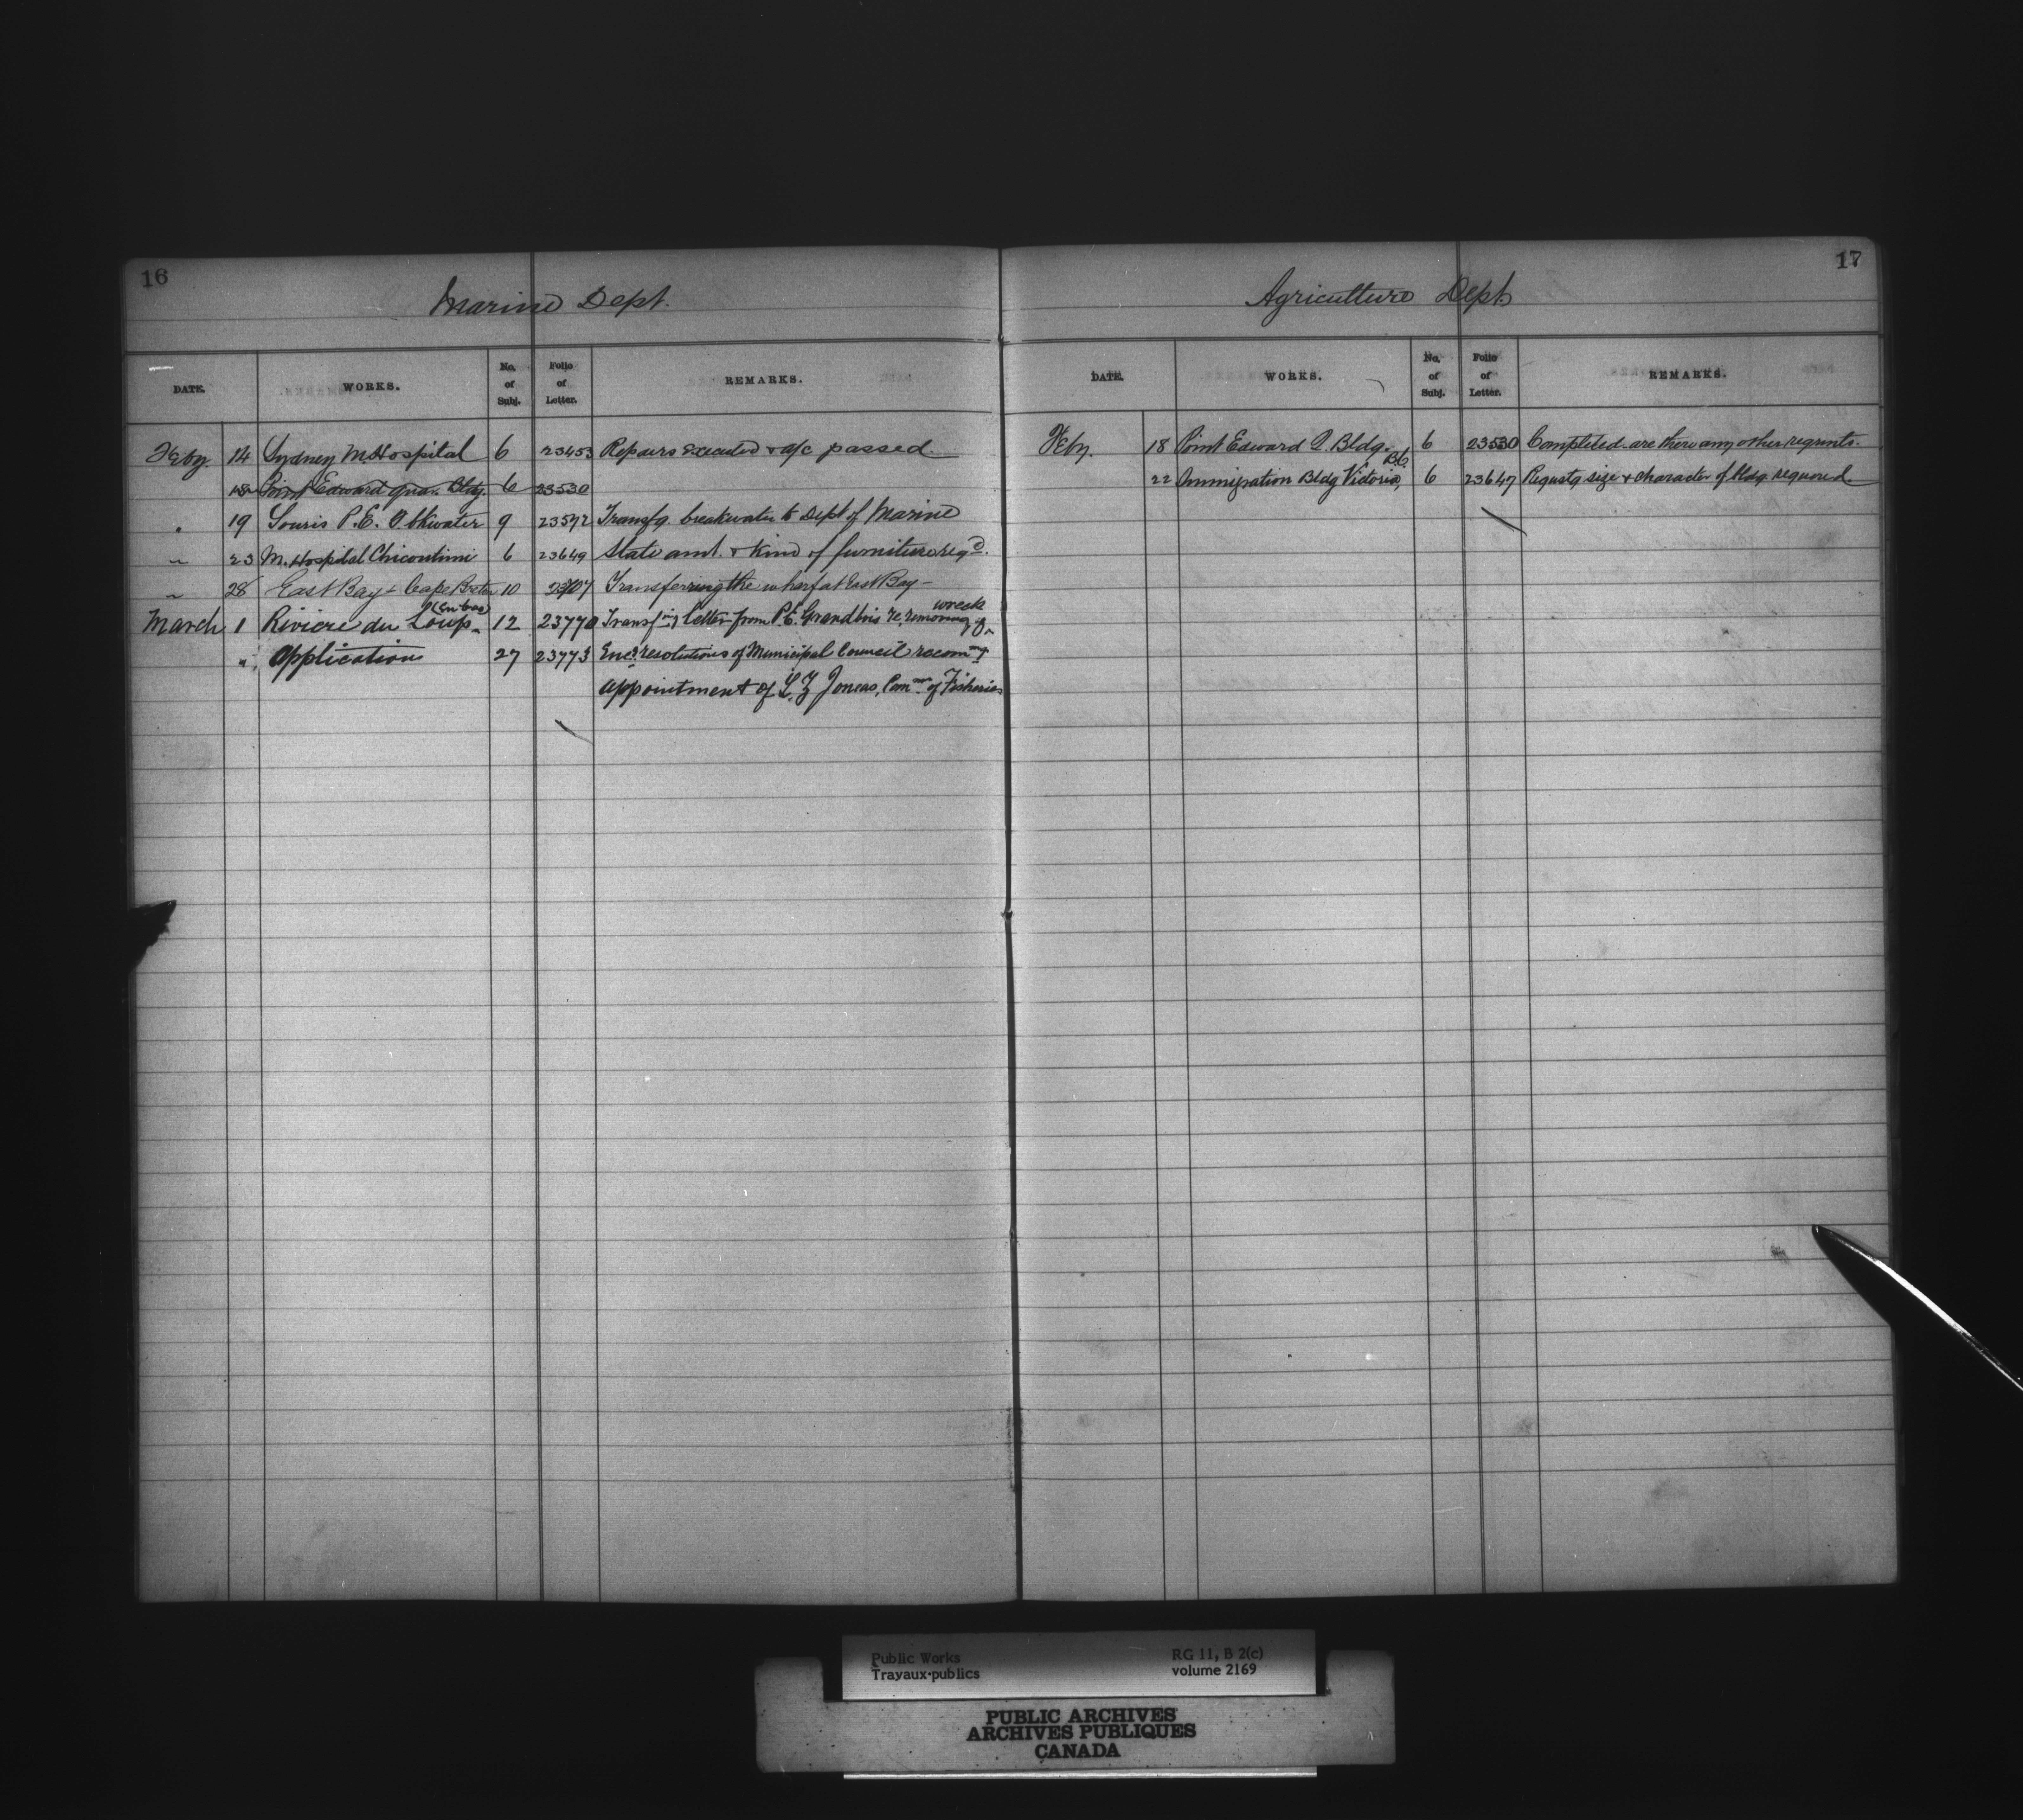 16
Marine Dept.
DATE. WORKS. No. of Subj. Folio of Letter. REMARKS.
Feby. 14 Sydney M. Hospital 6 23453 Repairs executed & a/c passed.
18 Point Edward Quar. Bldg. 6 23530
" 19 Souris P.E.I. Bkwater 9 23592 Transfg. breakwater to Dept of Marine
" 23 M. Hospital Chicoutimi 6 23649 State amt. & kind of furniture reqd.
" 28 East Bay & Cape 10 Transferring the wharf at East Bay -
March 1 Riviere du Loup (en bas) 12 23770 Transfing letter from P.E. Grandbois re, removing of wreck
" Application 27 23773 Encg resolutions of Municipal Council recommg
appointment of L. Z Joncas, Commr of Fisheries
17
Agriculture Dept.
DATE. WORKS. No. of Subj. Folio of Letter. REMARKS.
Feby. 18 Point Edward Q. Bldg. 6 23530 Completed - are there any other reqmnts.
22 Immigration Bldg Victoria, B.C. 6 23647 Requstg size & character of bldg required
Public Works
Travaux publics
RG 11, B 2(c)
volume 2169
PUBLIC ARCHIVES
ARCHIVES PUBLIQUES
CANADA